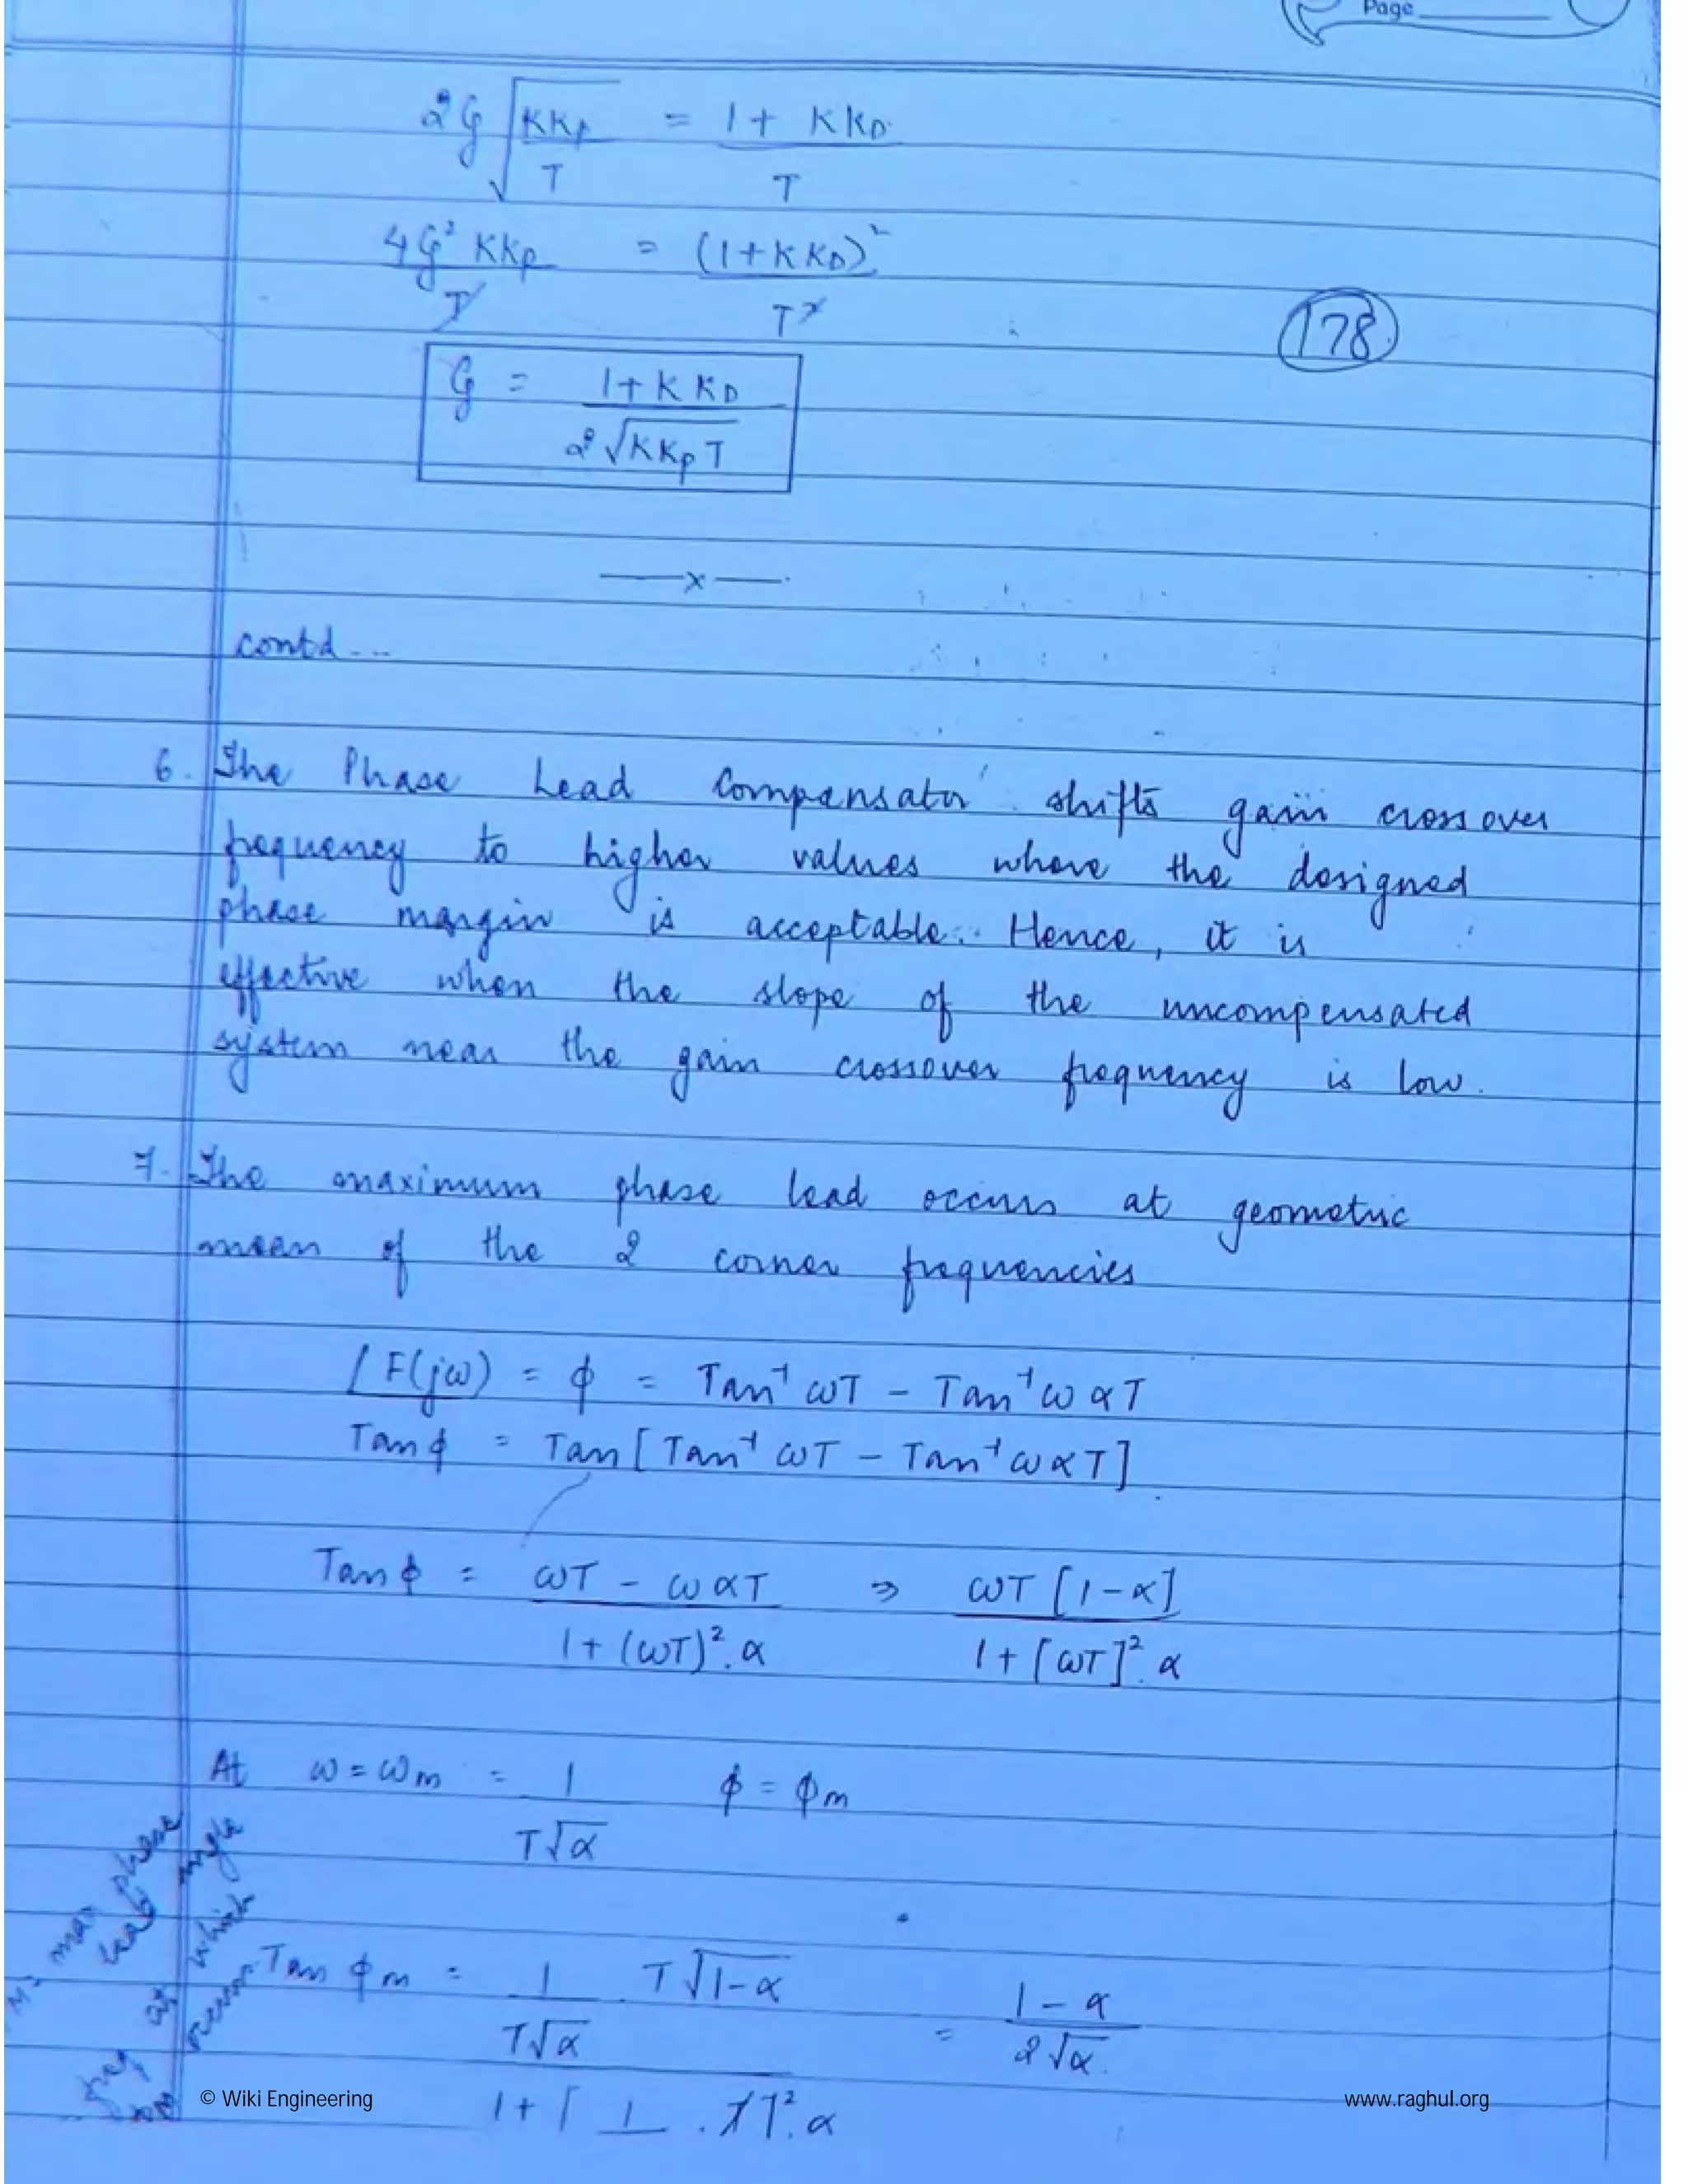 Page
2ξ √(KKp/T) = (1 + KKD)/T
4ξ² KKp / T = (1+KKD)² / T²
178
ξ = (1+KKD) / (2√(KKpT))
—x—
contd...
6. The Phase Lead Compensator shifts gain crossover
frequency to higher values where the designed
phase margin is acceptable. Hence, it is
effective when the slope of the uncompensated
system near the gain crossover frequency is low.
7. The maximum phase lead occurs at geometric
mean of the 2 corner frequencies
∠F(jω) = ϕ = Tan⁻¹ ωT − Tan⁻¹ ω α T
Tan ϕ = Tan [Tan⁻¹ ωT − Tan⁻¹ ω α T]
Tan ϕ = (ωT − ω α T) / (1 + (ωT)².α) ⇒ ωT [1−α] / (1 + [ωT]².α)
At ω = ωm = 1 / (T√α) ϕ = ϕm
max phase
lead angle
at which
Tan ϕm = (1/(T√α) . T√(1−α)) / (1 + [1 . T]².α) = (1 − α) / (2√α)
© Wiki Engineering
www.raghul.org